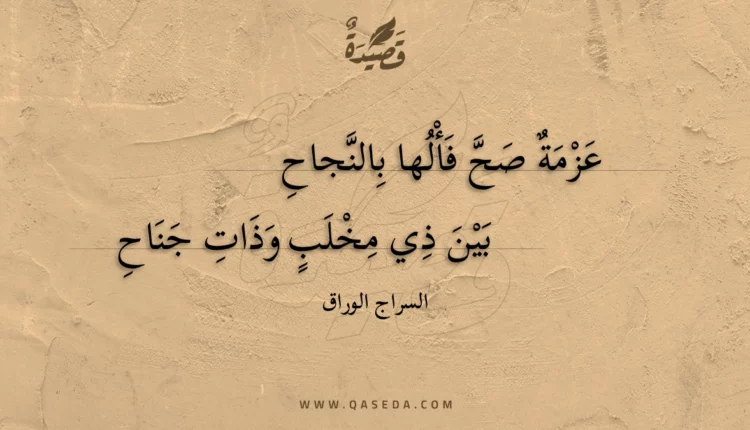 قَصِيدَةٌ
عَزْمَةٌ صَحَّ فَأْلُها بِالنَّجاحِ
بَيْنَ ذِي مِخْلَبٍ وَذَاتِ جَنَاحِ
السراج الوراق
WWW.QASEDA.COM